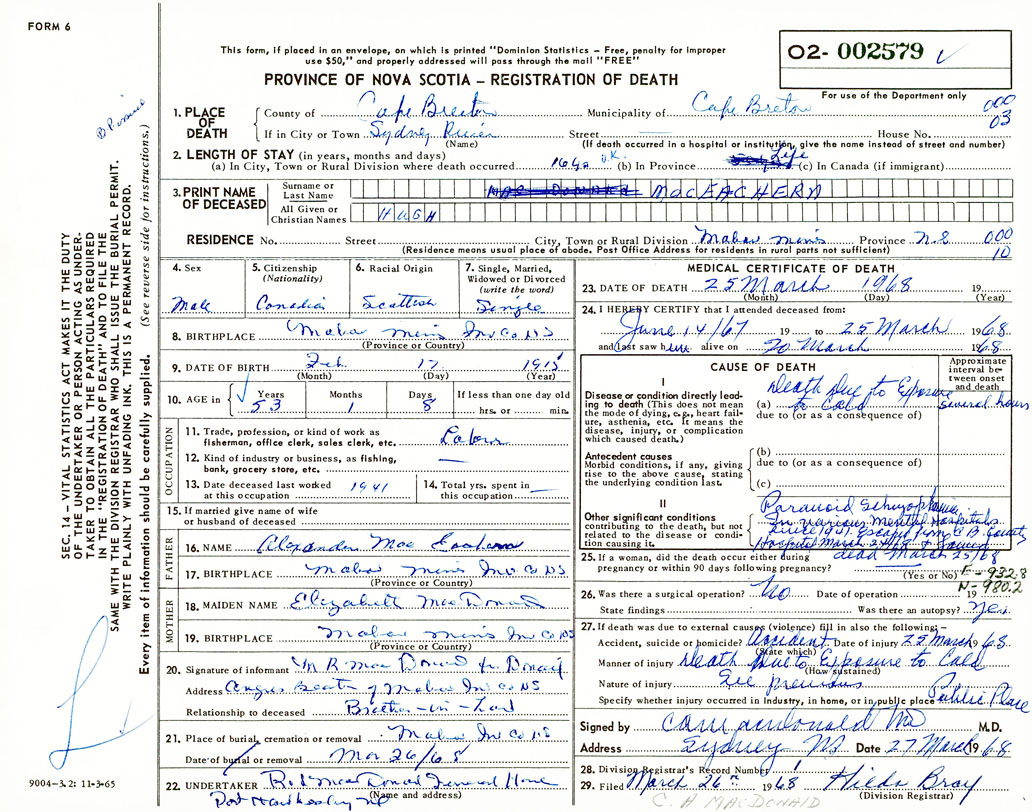 FORM 6
This form, if placed in an envelope, on which is printed "Dominion Statistics – Free, penalty for improper
use $50," and properly addressed will pass through the mail "FREE"
O2- 002579
PROVINCE OF NOVA SCOTIA – REGISTRATION OF DEATH
For use of the Department only
000
03
1. PLACE OF DEATH
County of Cape Breton Municipality of Cape Breton
If in City or Town Sydney River Street House No.
(Name) (If death occurred in a hospital or institution, give the name instead of street and number)
2. LENGTH OF STAY (in years, months and days)
(a) In City, Town or Rural Division where death occurred (b) In Province Life (c) In Canada (if immigrant)
3. PRINT NAME OF DECEASED
Surname or Last Name MACEACHERN
All Given or Christian Names HUGH
RESIDENCE No. Street City, Town or Rural Division Mabou Province N.S 000
(Residence means usual place of abode. Post Office Address for residents in rural ports not sufficient) 10
4. Sex
Male
5. Citizenship (Nationality)
Canadian
6. Racial Origin
Scottish
7. Single, Married, Widowed or Divorced (write the word)
Single
8. BIRTHPLACE Mabou mines Inv Co NS
(Province or Country)
9. DATE OF BIRTH Feb. 17 1915
(Month) (Day) (Year)
10. AGE in Years Months Days If less than one day old
53 1 8 hrs. or min.
OCCUPATION
11. Trade, profession, or kind of work as fisherman, office clerk, sales clerk, etc. Labour
12. Kind of industry or business, as fishing, bank, grocery store, etc.
13. Date deceased last worked at this occupation 1941
14. Total yrs. spent in this occupation
15. If married give name of wife or husband of deceased
FATHER
16. NAME Alexander Mac Eachern
17. BIRTHPLACE Mabou mines Inv Co NS
(Province or Country)
MOTHER
18. MAIDEN NAME Elizabeth MacDonald
19. BIRTHPLACE Mabou mines Inv Co NS
(Province or Country)
20. Signature of informant
Address Angus Beaton Mabou Inv Co NS
Relationship to deceased Brother-in-Law
21. Place of burial, cremation or removal Mabou Inv Co NS
Date of burial or removal Mar 26/68
22. UNDERTAKER MacDonald Funeral Home
(Name and address)
Port Hawkesbury NS
MEDICAL CERTIFICATE OF DEATH
23. DATE OF DEATH 25 March 1968 19
(Month) (Day) (Year)
24. I HEREBY CERTIFY that I attended deceased from:
June 14/67 19 to 25 March 1968
and last saw him alive on 20 March 1968
CAUSE OF DEATH
Approximate interval between onset and death
I
Disease or condition directly leading to death (This does not mean the mode of dying, e.g., heart failure, asthenia, etc. It means the disease, injury, or complication which caused death.)
Death Due to Exposure
(a) to Cold several hours
due to (or as a consequence of)
Antecedent causes
Morbid conditions, if any, giving rise to the above cause, stating the underlying condition last.
(b)
due to (or as a consequence of)
(c)
II
Other significant conditions contributing to the death, but not related to the disease or condition causing it.
Paranoid Schizophrenia
In various Mental Hospitals
since 1941. Escaped from C.B. County
Hospital March & found
dead March 25/68
25. If a woman, did the death occur either during pregnancy or within 90 days following pregnancy?
(Yes or No) E-932.8
N-980.2
26. Was there a surgical operation? No Date of operation 19
State findings Was there an autopsy? yes
27. If death was due to external causes (violence) fill in also the following:–
Accident, suicide or homicide? Accident Date of injury 25 March 1968
(State which)
Manner of injury Death Due to Exposure to Cold
(How sustained)
Nature of injury See previous
Specify whether injury occurred in Industry, in home, or in public place Public Place
Signed by M.D.
Address Sydney NS Date 27 March 1968
28. Division Registrar's Record Number 1
29. Filed March 26th 1968 Hilda Bray
(Division Registrar)
C. A MACDONALD
SEC. 14 – VITAL STATISTICS ACT MAKES IT THE DUTY
OF THE UNDERTAKER OR PERSON ACTING AS UNDER-
TAKER TO OBTAIN ALL THE PARTICULARS REQUIRED
IN THE "REGISTRATION OF DEATH" AND TO FILE THE
SAME WITH THE DIVISION REGISTRAR WHO SHALL ISSUE THE BURIAL PERMIT.
WRITE PLAINLY WITH UNFADING INK. THIS IS A PERMANENT RECORD.
Every item of information should be carefully supplied. (See reverse side for instructions.)
9004-3.2: 11-3-65